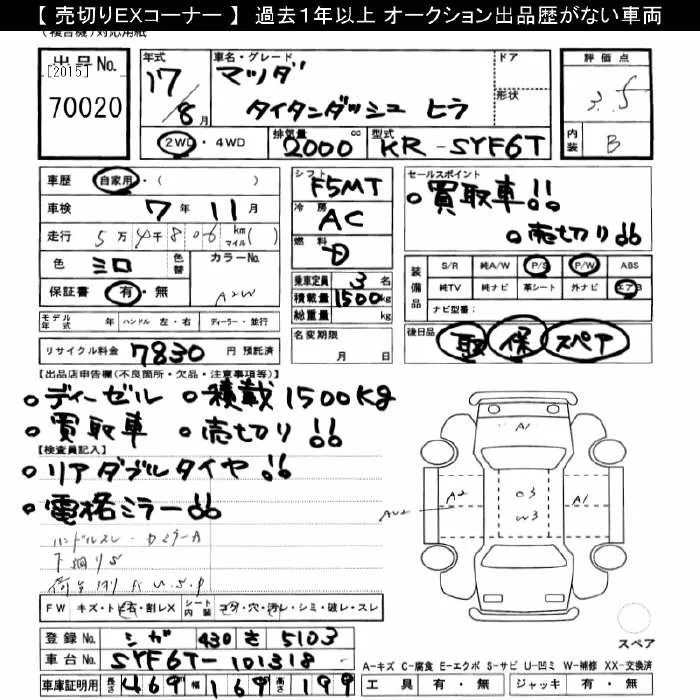 【 売切りEXコーナー 】 過去1年以上 オークション出品歴がない車両
(複合機)対応用紙
出品No.
[2015]
70020
年式
17/8月
車名・グレード
マツダ
タイタンダッシュ ヒラ
ドア
形状
評価点
3.5
内装
B
2WD・4WD
排気量
2000
cc
型式
KR-SYF6T
車歴 自家用・( )
車検 7年 11月
走行 5万4千806 km マイル( )
色
色替
カラーNo.
A2W
保証書 有・無
モデル年式 年 ハンドル 左・右 ディーラー・並行
リサイクル料金 7830 円 預託済
シフト
F5MT
冷房
AC
燃料
乗車定員 3 名
積載量 1500kg
総重量 kg
名変期限
月 日
セールスポイント
。買取車!!
。売切り!!
装備品
S/R 純A/W P/S P/W ABS
純TV 純ナビ 革シート 外ナビ エアB
ナビ型番:
後日品
取 保 スペア
【出品店申告欄(不良箇所・欠品・注意事項等)】
。ディーゼル 。積載1500kg
。買取車 。売切り!!
【検査員記入】
。リアダブルタイヤ!!
。電格ミラー!!
ハンドルスレ
A1
A2
A1
W3
FW キズ・トビ石・割レX シート内装 コゲ・穴・汚レ・シミ・破レ・スレ
登録No. シガ 430 さ 5103
車台No. SYF6T-101318
車庫証明用 長さ 469 幅 169 高さ 199
スペア
A-キズ C-腐食 E-エクボ S-サビ U-凹ミ W-補修 XX-交換済
工具 有・無 ジャッキ 有・無